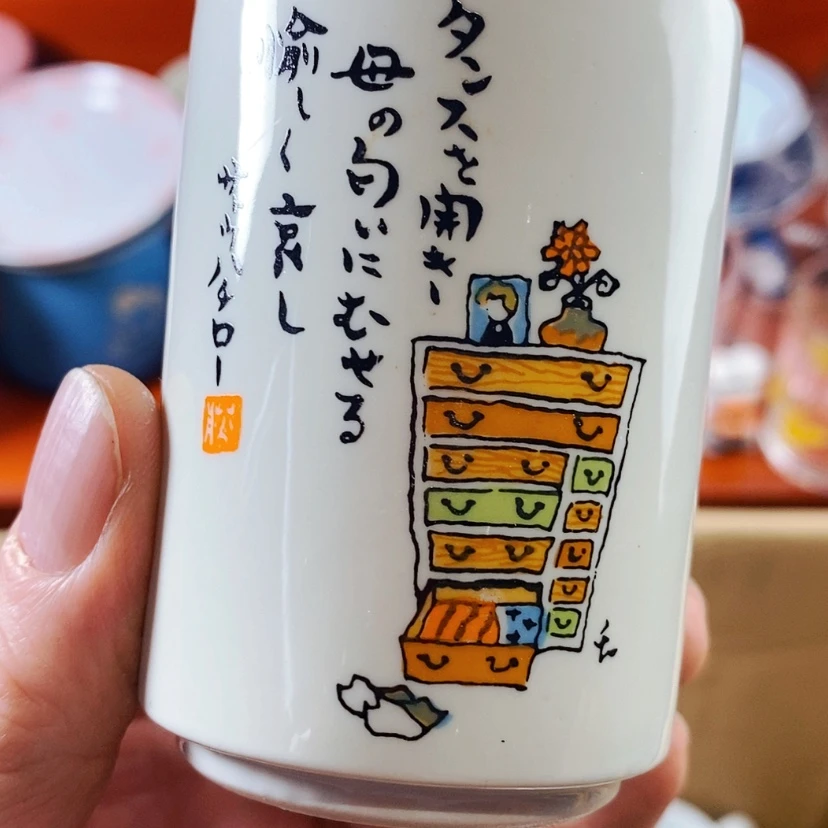 タンスを開き
母の匂いにむせる
愉しく哀し
サトウハチロー